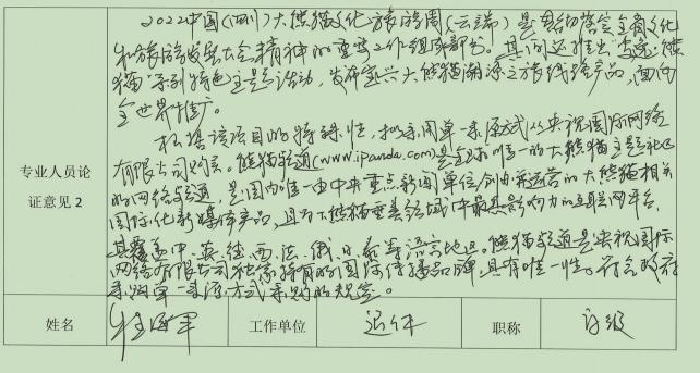 2022中国(四川)大熊猫文化旅游周(云端)是贯彻落实全省文化
和旅游发展大会精神的重要工作组成部分。其间还推出
猫"系列特色主题活动,发布宝兴大熊猫溯源之旅线路产品,面向
全世界推广。
根据该项目的特殊性,拟采用单一来源方式从央视国际网络
有限公司购买。熊猫频道(www.ipanda.com)是全球唯一的大熊猫主题
专业人员论
证意见2
的网络频道,是国内唯一由中央重点新闻单位创办并运营的大熊猫相关
国际化新媒体产品,且为大熊猫垂类领域中最具影响力的互联网平台,
其覆盖中、英、韩、西、法、俄、日、等语言地区。熊猫频道是央视国际
网络有限公司独家持有的国际传播品牌,具有唯一性。符合政府
采购单一来源方式采购的规定。
姓名
工作单位
退休
职称